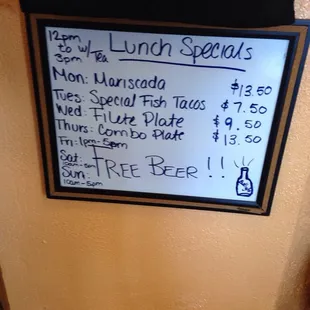 12pm to w/ Tea 3pm
Lunch Specials
Mon: Mariscada $13.50
Tues: Special Fish Tacos $7.50
Wed: Filete Plate $9.50
Thurs: Combo Plate $13.50
Fri: 1pm-5pm
Sat:
FREE BEER!!
Sun:
10am-5pm